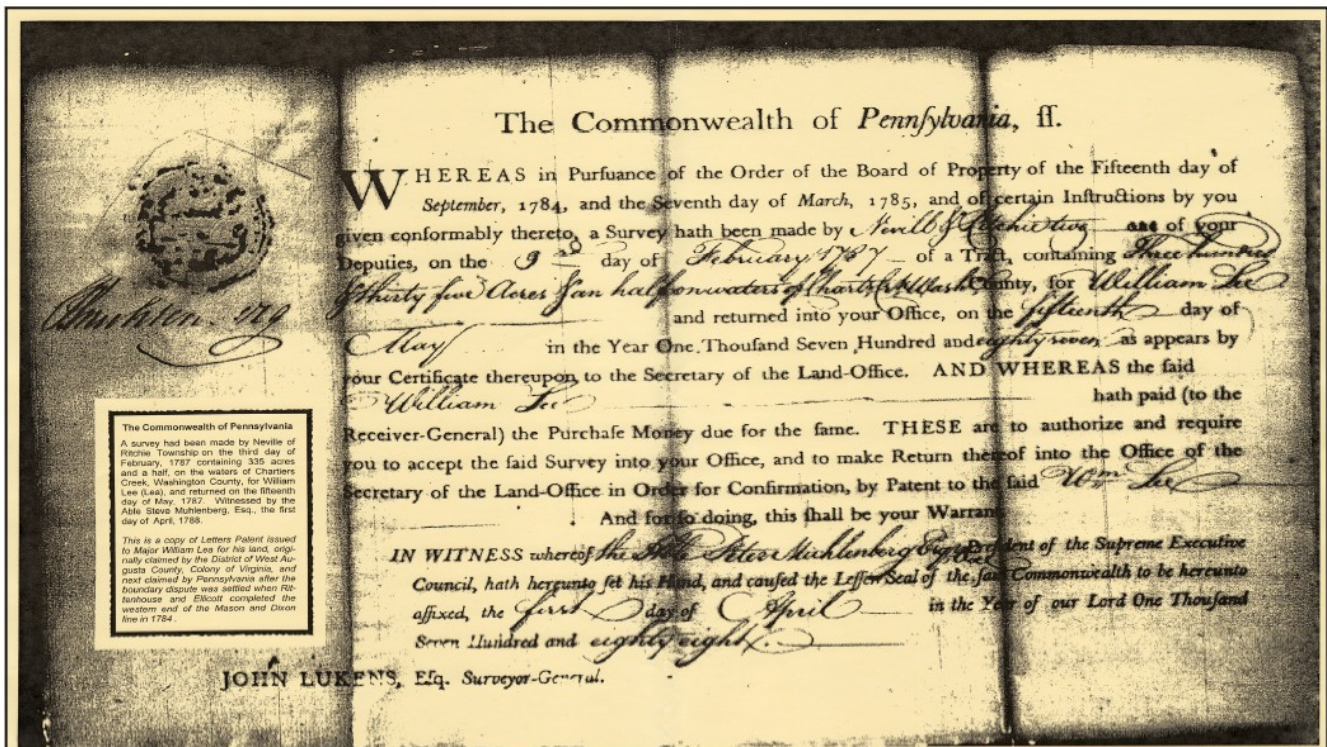 The Commonwealth of Pennſylvania, ſſ.
WHEREAS in Purſuance of the Order of the Board of Property of the Fifteenth day of
September, 1784, and the Seventh day of March, 1785, and of certain Inſtructions by you
given conformably thereto, a Survey hath been made by Nevill & Ritchie two one of your
Deputies, on the day of February 1787 of a Tract, containing Three hundred
& thirty five Acres & an half on waters of Chart. Ck Wash. County, for William Lee
and returned into your Office, on the fifteenth day of
May in the Year One Thouſand Seven Hundred and eighty seven as appears by
your Certificate thereupon to the Secretary of the Land-Office. AND WHEREAS the ſaid
William Lee hath paid (to the
Receiver-General) the Purchaſe Money due for the ſame. THESE are to authorize and require
you to accept the ſaid Survey into your Office, and to make Return thereof into the Office of the
Secretary of the Land-Office in Order for Confirmation, by Patent to the ſaid Wm Lee
And for ſo doing, this ſhall be your Warrant
IN WITNESS whereof the Peter Muhlenberg Esqr Preſident of the Supreme Executive
Council, hath hereunto ſet his Hand, and cauſed the Leſſer Seal of the ſaid Commonwealth to be hereunto
affixed, the first day of April in the Year of our Lord One Thouſand
Seven Hundred and eighty eight.
JOHN LUKENS, Eſq. Surveyor-General.
The Commonwealth of Pennsylvania
A survey had been made by Neville of
Ritchie Township on the third day of
February, 1787 containing 335 acres
and a half, on the waters of Chartiers
Creek, Washington County, for William
Lee (Lea), and returned on the fifteenth
day of May, 1787. Witnessed by the
Able Steve Muhlenberg, Esq., the first
day of April, 1788.
This is a copy of Letters Patent issued
to Major William Lea for his land, origi-
nally claimed by the District of West Au-
gusta County, Colony of Virginia, and
next claimed by Pennsylvania after the
boundary dispute was settled when Rit-
tenhouse and Ellicott completed the
western end of the Mason and Dixon
line in 1784.